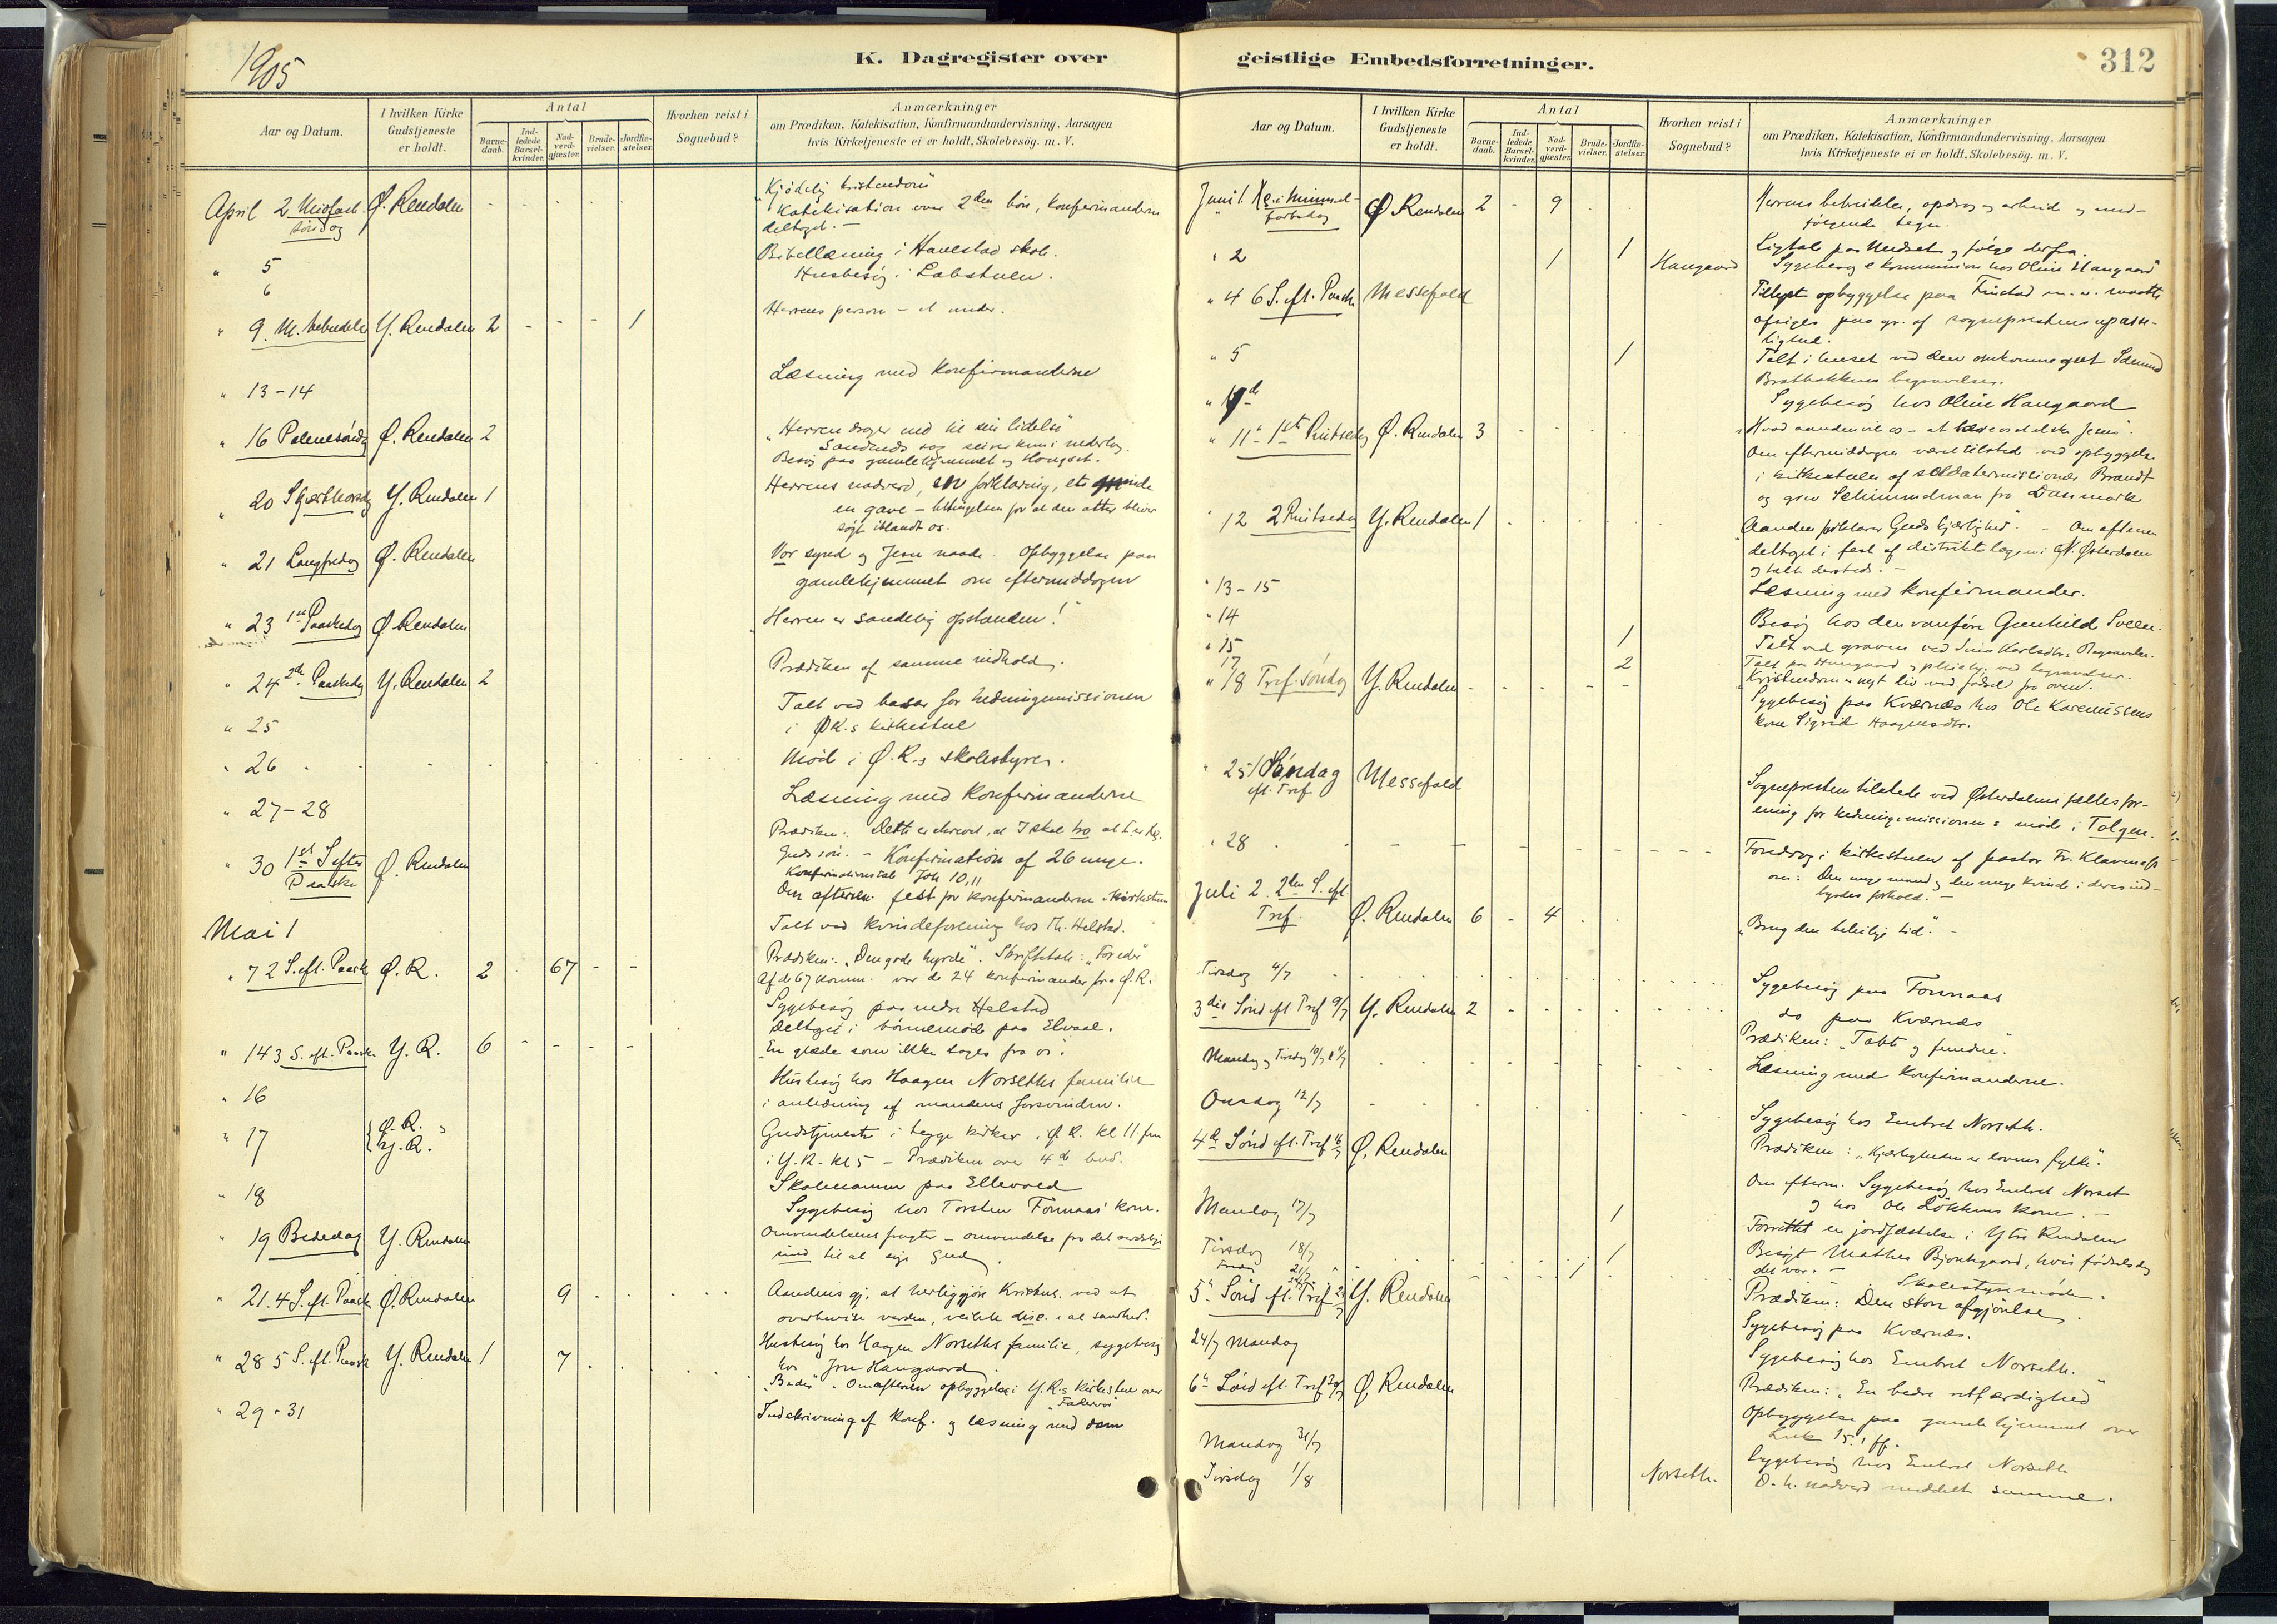 1905
K. Dagregister over
Aar og Datum.
I hvilken Kirke Gudstjeneste er holdt.
Antal
Barnedaab.
Indledede Barselkvinder.
Nadverdgjæster.
Brudevielser.
Jordfæstelser.
Hvorhen reist i Sognebud?
Anmærkninger
om Prædiken, Katekisation, Konfirmandundervisning, Aarsagen
hvis Kirketjeneste ei er holdt, Skolebesög. m. V.
April 2 Midfastesöndag Ø. Rendalen
"Kjødelig kristendom"
Katekisation over 2den bön, konfirmanderne
deltaget. —
" 5 Bibellæsning i Hanestad skole.
6 Husbesög i Labstuen.
" 9. M. bebudelse Y. Rendalen 2 - - - 1 Herrens person - et under.
" 13-14 Læsning med konfirmanderne
" 16 Palmesönd Ø. Rendalen 2 "Herren drager ned til sin lidelse"
Besög paa gamlehjemmet
" 20 Skjærtorsdg Y. Rendalen 1 Herrens nadverd, en forklaring, ei minde
en gave - betingelsen for at den atter bliver
søgt iblandt os.
" 21 Langfredag Ø. Rendalen Vor synd og Jesu naade. Opbyggelse paa
gamlehjemmet om eftermiddagen
" 23 1ste Paaskedag Ø Rendalen "Herren er sandelig opstanden!"
" 24 2den Paaskedag Y. Rendalen 2 Prædiken af samme indhold.
" 25 Talt ved basar for hedningemissionen
i Ø R.s kirkestue
" 26 Möde i Ø. R.s skolestyre.
" 27-28 Læsning med konfirmanderne
" 30 1ste S efter Paaske Ø. Rendalen
Guds sön. - Konfirmation af 26 unge.
Konfirmationstale Joh 10,11
Om aftenen fest for konfirmanderne i kirkestuen
Mai 1 Talt ved kvindeforening hos Th. Helstad.
" 7 2 S. eft. Paaske Ø. R. 2 67 - - Prædiken: "Den gode hyrde". Skriftetale:
Af de 67 komm. var de 24 konfirmander fra Ø. R.
Sygebesög paa nedre Helstad
Deltaget i börnemöde paa Elvaal.
" 14 3 S. eft. Paaske Y. R. 6 - - - - "En glæde som ikke tages fra os".
" 16 Husbesög hos Haagen Norseths familie
i anledning af mandens forsvinden.
" 17 Ø. R. Y. R. Gudstjeneste i begge kirker, i Ø. R. kl 11 fm
i Y. R. kl 5 - Prædiken over 4de bud.
" 18 Skoleexamen paa Ellevold
Sygebesög hos Torsten Fonnaas' kone.
" 19 Bededag Y. Rendalen Omvendelsens frugter - omvendelse fra det verdslige
sind til at sige Gud
" 21. 4 S. eft. Paaske Ø. Rendalen 9 Aandens gj. at herliggjöre Kristus. ved at
overbevise verden, veilede disc. i al sandhed.
" 28 5 S. eft. Paaske Y. Rendalen 1 7 Husbesög hos Haagen Norseths familie, sygebesög
hos Jon Haugaard
"Beder". Om aftenen opbyggelse i Y. R.s kirkestue over
"Fadervor"
" 29-31 Indskrivning af konf. og læsning med dem
geistlige Embedsforretninger.
312
Aar og Datum.
I hvilken Kirke Gudstjeneste er holdt.
Antal
Barnedaab.
Indledede Barselkvinder.
Nadverdgjæster.
Brudevielser.
Jordfæstelser.
Hvorhen reist i Sognebud?
Anmærkninger
om Prædiken, Katekisation, Konfirmandundervisning, Aarsagen
hvis Kirketjeneste ei er holdt, Skolebesög. m. V.
Juni 1. Kr. Himmelfartsdag Ø Rendalen 2 - 9 Herrens bebreidelse, opdrag og arbeid og medfølgende
tegn.
" 2 1 1 Haugaard Ligtale paa Undset og følge derfra.
Sygebesøg & kommunion hos Oline Haugaard
" 4 6 S. eft. Paaske Messefald Tillyst opbyggelse paa Finstad m. v. maatte
afsiges paa gr. af sogneprestens upasselighed.
" 5 1 Talt i huset ved den omkomne
Bratbakkens begravelse.
Sygebesög hos Oline Haugaard
" 11 1ste Pintsedag Ø. Rendalen 3 "Hvad aanden vil os - at lære os at elske Jesus".
Om eftermiddagen været tilstede ved opbyggelse
i kirkestuen af soldatermissionær Brandt
og grev Schimmelman fra Danmark
" 12 2 Pintsedag Y. Rendalen 1 "Aanden forklarer Guds kjærlighed". - Om aftenen
deltaget i fest af distriktslogen i N. Østerdalen
og talt dersteds. -
" 13-15 Læsning med konfirmander.
" 14 Besög hos den vanføre Gunhild
" 15 1 Talt ved graven ved
17 2 Talt paa Haugaard
" 18 Tref. söndag Y. Rendalen "Kristendom er nyt liv ved fødsel fra oven".
Sygebesög paa Kværnes hos Ole Kareniussens
kone Sigrid Haagensdtr.
" 25 1 Söndag eft. Tref Messefald Sognepresten tilstede ved Østerdalens fællesforening
for hedningemissionens möde i Tolgen.
" 28 Foredrag i kirkestuen af pastor Fr. Klaveness
om: Den unge mand og den unge kvinde i deres indbyrdes
forhold. -
Juli 2. 2den S. eft. Tref. Ø. Rendalen 6 - 4 "Brug den beleilige tid". -
Tirsdag 4/7 Sygebesög paa Fonnaas
do paa Kværnes
3die Sönd eft. Tref 9/7 Y. Rendalen 2 Prædiken: "Tabte og fundne".
Mandag og Tirsdag 10/7 & 11/7 Læsning med konfirmanderne.
Onsdag 12/7 Sygebesög hos Embret Norseth.
4de Sönd eft. Tref 16/7 Ø. Rendalen Prædiken: "Kjærligheden er lovens fylde".
Om efterm. Sygebesög hos Embret Norset
og hos Ole Løkkens kone. -
Mandag 17/7 1 Forrettet en jordfæstelse i Ytre Rendalen
Tirsdag 18/7 1 Besögt Mathea Bjontegaard, hvis fødselsdag
det var. -
21/7 1 Skolestyremöde.
5te Sönd eft. Tref 23/7 Y. Rendalen Prædiken: Den store afgjörelse
Sygebesög paa Kværnes.
24/7 Mandag Sygebesög hos Embret Norseth.
6te Sönd eft. Tref 30/7 Ø. Rendalen Prædiken: "En bedre retfærdighed"
Opbyggelse paa gamlehjemmet over
Luk 15. 1 ff.
Mandag 31/7 Sygebesög hos Embret Norseth
Tirsdag 1/8 Norseth. D. h. nadverd meddelt samme.